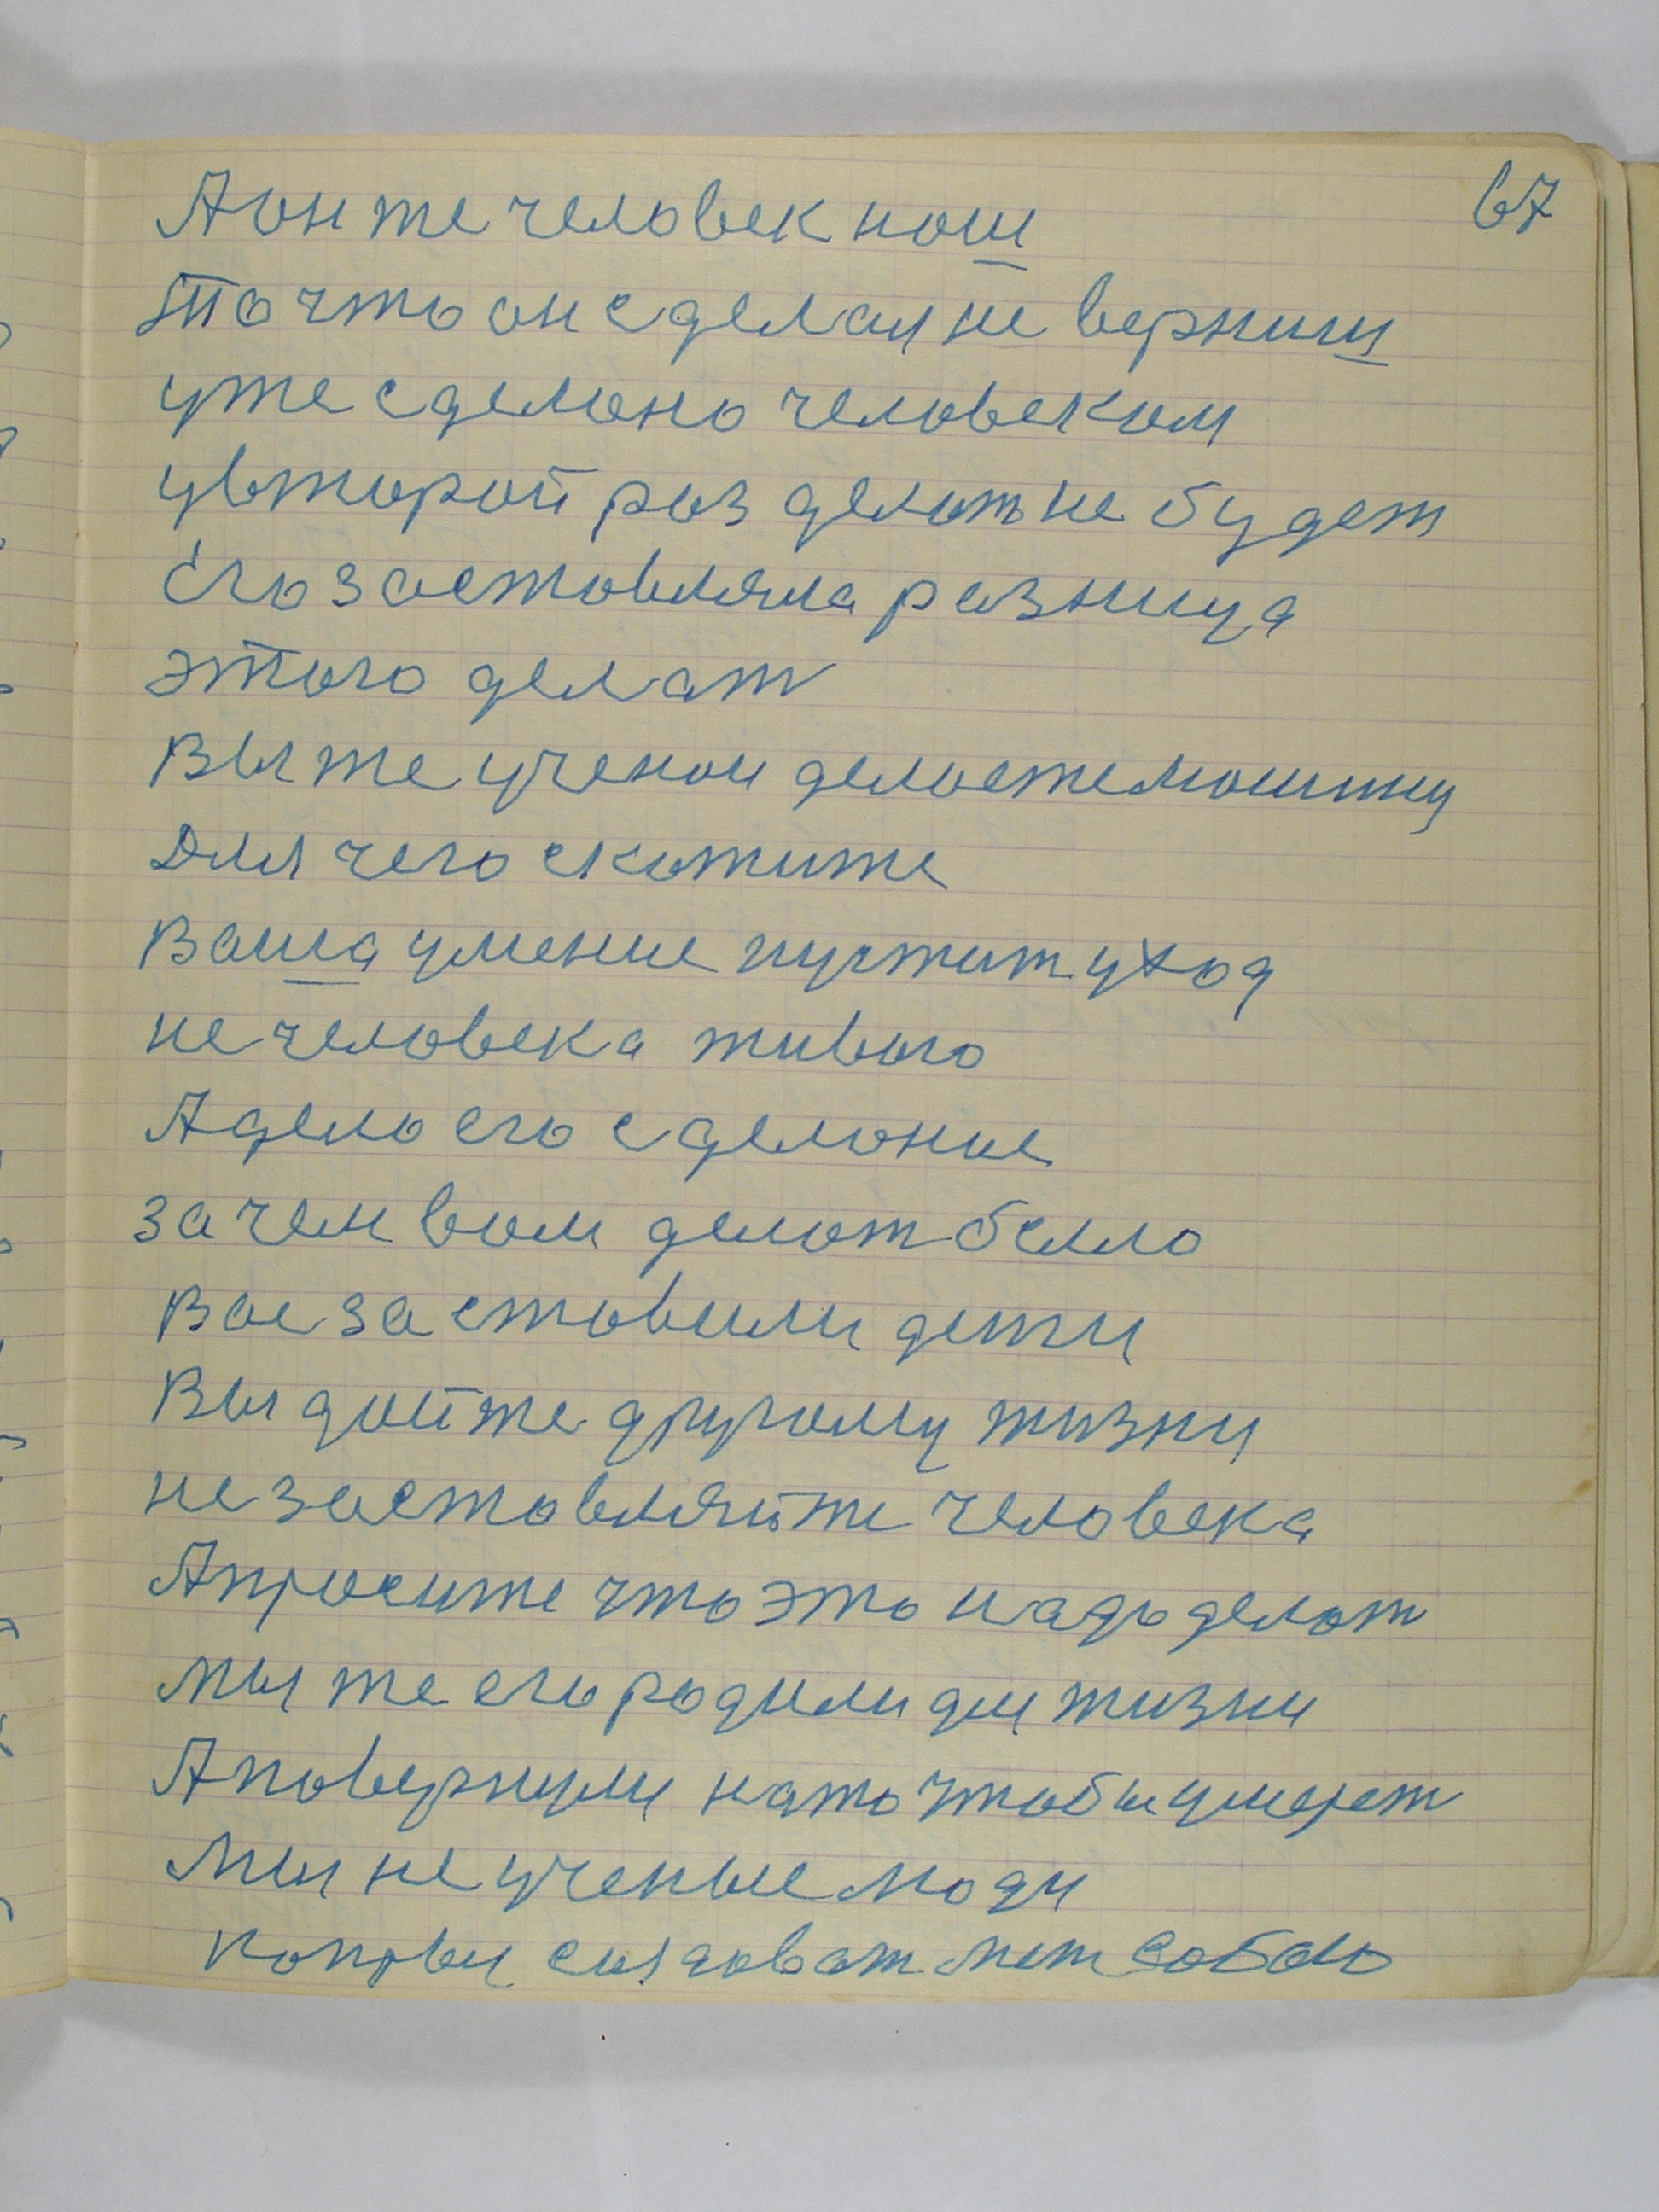 67
А он же человек наш
То что он сделал не верниш
уже сделано человеком
у второй раз делат не будет
Его заставляла разница
этого делат
Вы же ученаи делаете машину
Для чего скажите
Ваша умение пустит у ход
не человека живого
А дело его сделание
зачем вам делат было
Вас заставили дети
Вы дайте другому жизни
не заставляйте человека
А просите что это надо делат
мы же его родили для жизни
А повернули на то чтобы умерет
Мы не ученые люди